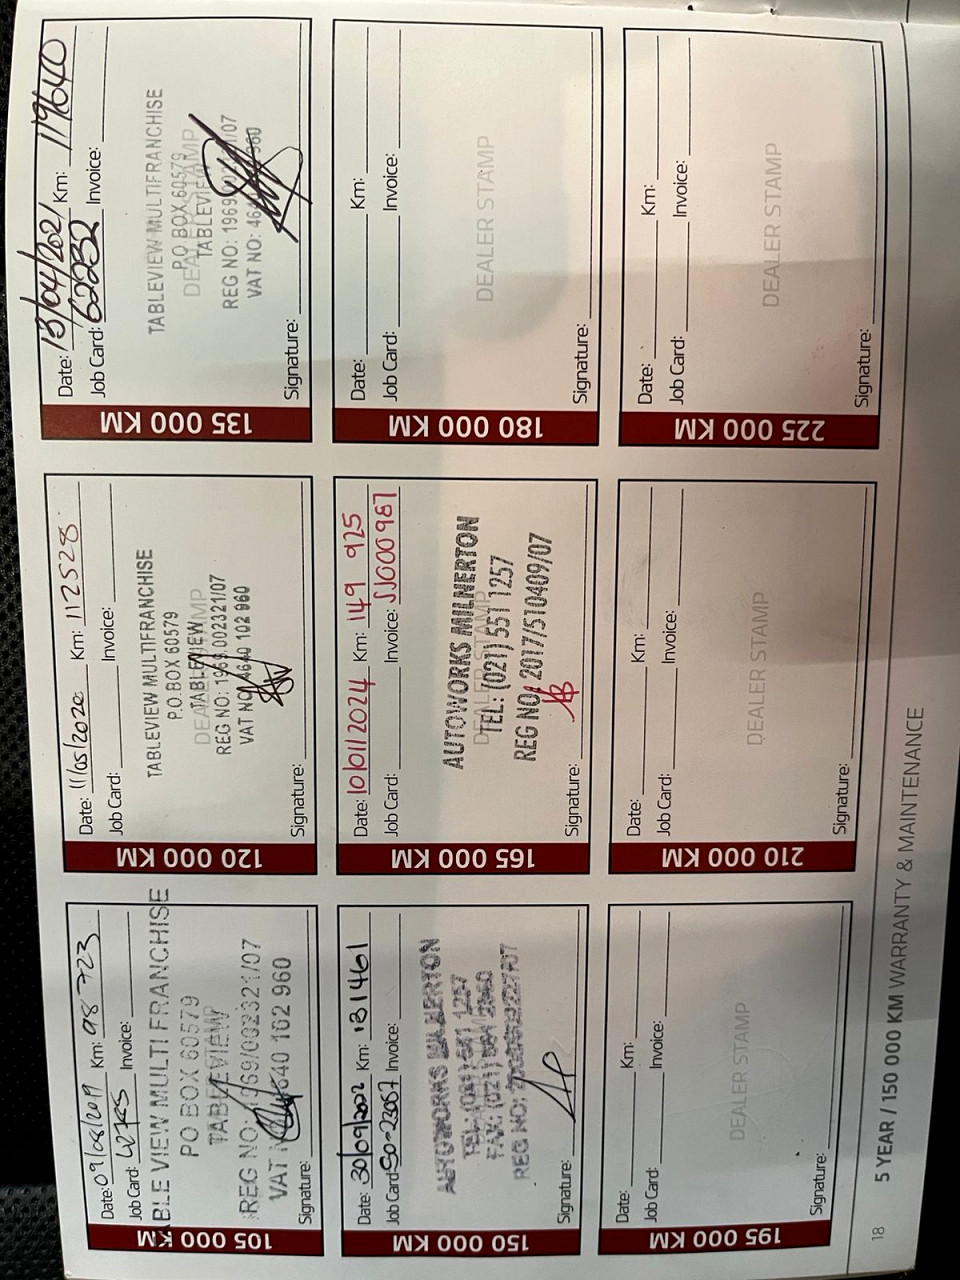 105 000 KM
Date: 09/08/2019 Km: 98723
Job Card: Invoice:
TABLE VIEW MULTI FRANCHISE
PO BOX 60579
TABLEVIEW
REG NO: 1969/002321/07
VAT NO: 4640 102 960
Signature:
120 000 KM
Date: 11/05/2020 Km: 112528
Job Card: Invoice:
TABLEVIEW MULTIFRANCHISE
P.O. BOX 60579
DEALER STAMP
TABLEVIEW
REG NO: 1969/002321/07
VAT NO: 4640 102 960
Signature:
135 000 KM
Date: 13/04/2021 Km: 119640
Job Card: 62232 Invoice:
TABLEVIEW MULTIFRANCHISE
P.O BOX 60579
DEALER STAMP
TABLEVIEW
REG NO: 1969/002321/07
VAT NO: 4640 102 960
Signature:
150 000 KM
Date: 30/09/2022 Km: 131461
Job Card: SO-2367 Invoice:
AUTOWORKS MILNERTON
TEL: (021) 551 1257
FAX: (021)
REG NO:
Signature:
165 000 KM
Date: 10/01/2024 Km: 149 925
Job Card: Invoice: JJC000987
AUTOWORKS MILNERTON
DEALER STAMP
TEL: (021) 551 1257
REG NO: 2017/510409/07
Signature:
180 000 KM
Date: Km:
Job Card: Invoice:
DEALER STAMP
Signature:
195 000 KM
Date: Km:
Job Card: Invoice:
DEALER STAMP
Signature:
210 000 KM
Date: Km:
Job Card: Invoice:
DEALER STAMP
Signature:
225 000 KM
Date: Km:
Job Card: Invoice:
DEALER STAMP
Signature:
18 5 YEAR / 150 000 KM WARRANTY & MAINTENANCE